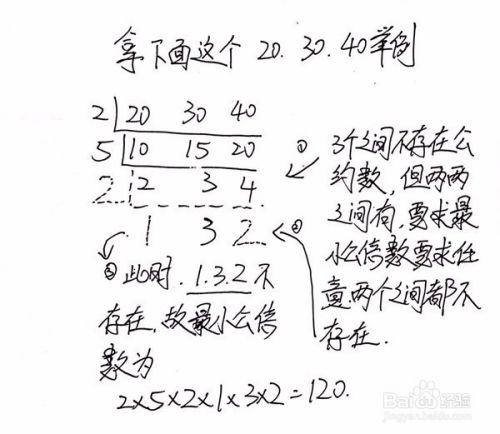 拿下面这个 20. 30. 40举例
2 20 30 40
5 10 15 20
2 2 3 4
1 3 2
① 3个之间不存在公
约数，但两两
之间有，要求最
小公倍数要求任
意两个之间都不
存在.
②
③此时.1.3.2不
存在，故最小公倍
数为
2×5×2×1×3×2=120.
Baidu经验
jingyan.baidu.com